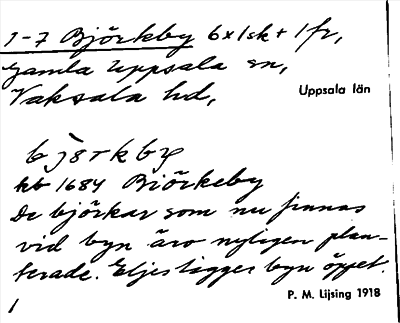 1-7 Björkby 6 x 1 sk + 1 fr,
Gamla Uppsala sn,
Vaksala hd,
Uppsala län
kb 1684 Biörkeby
De björkar som nu finnas
vid byn äro nyligen plan-
terade. Eljes ligger byn öppet.
P. M. Lijsing 1918
1